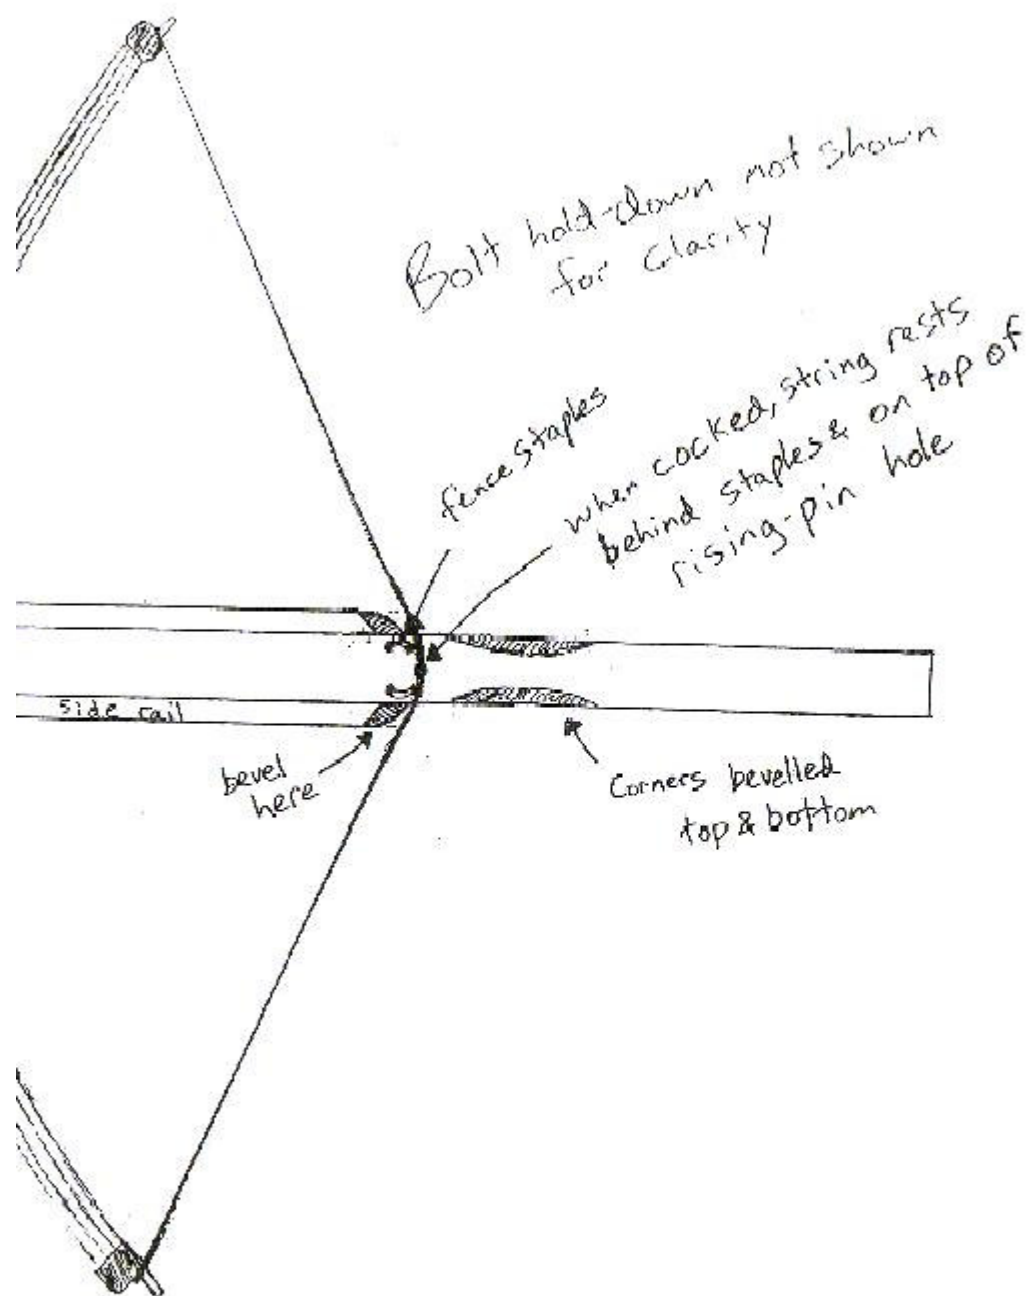 Bolt hold-down not shown
for clarity
fence staples
when cocked, string rests
behind staples & on top of
rising-pin hole
side rail
bevel
here
Corners bevelled
top & bottom